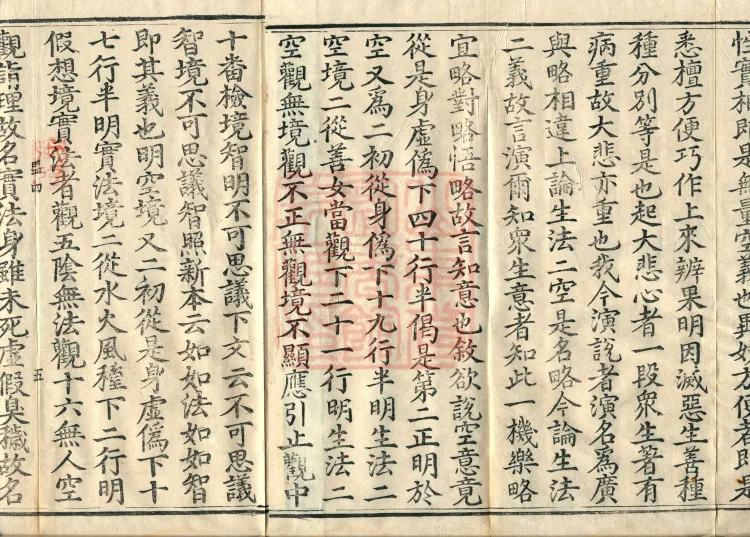 性實相即是無量空義也異妙方便者即是
悉檀方便巧作上來辨果明因滅惡生善種
種分別等是也起大悲心者一段衆生著有
病重故大悲亦重也我今演說者演名爲廣
與略相違上論生法二空是名略今論生法
二義故言演爾知衆生意者知此一機樂略
宜略對略悟略故言知意也敘欲說空意竟
從是身虛僞下四十行半偈是第二正明於
空又爲二初從身僞下十九行半明生法二
空境二從善女當觀下二十一行明生法二
空觀無境觀不正無觀境不顯應引止觀中
十番檢境智明不可思議下文云不可思議
智境不可思議智照新本云如如法如如智
即其義也明空境又二初從是身虛僞下十
七行半明實法境二從水火風種下二行明
假想境實法者觀五陰無法觀十六無人空
觀肯理故名實法身雖未死虛假臭穢故名
盟四
五